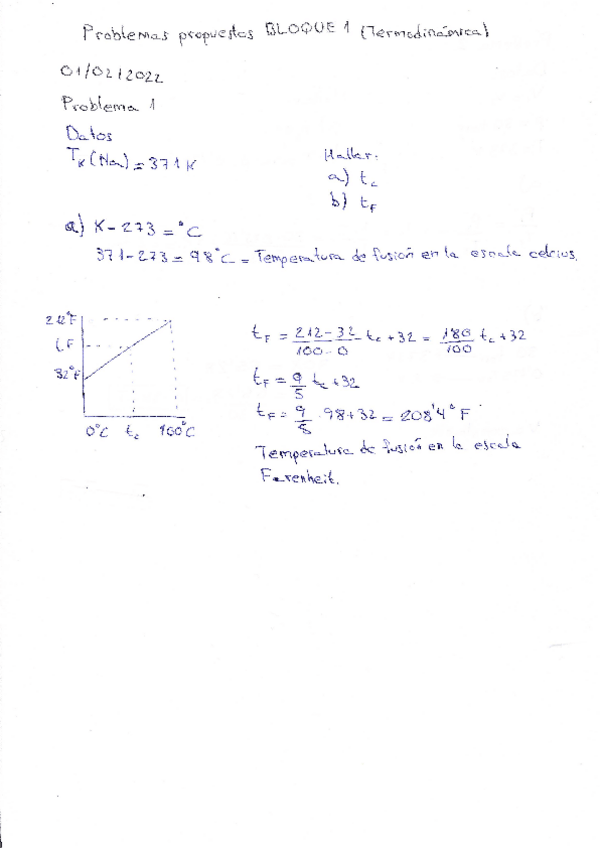 Problemas propuestos BLOQUE 1 (Termodinámica)
01/02/2022
Problema 1
Datos
T_K (Na) = 371 K
Hallar:
a) t_c
b) t_F
a) K - 273 = °C
371 - 273 = 98°C = Temperatura de fusión en la escala celcius.
212°F
t_F
32°F
0°C t_c 100°C
t_F = \frac{212 - 32}{100 - 0} t_c + 32 = \frac{180}{100} t_c + 32
t_F = \frac{9}{5} t_c + 32
t_F = \frac{9}{5} · 98 + 32 = 208'4°F
Temperatura de fusión en la escala
Farenheit.